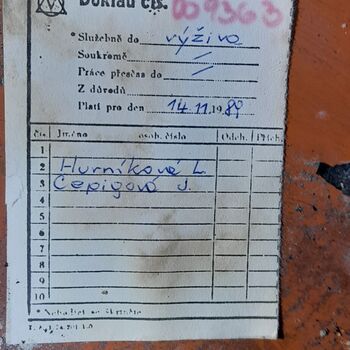 Doklad čís. 009363
* Služebně do výživa
Soukromě /
Práce přesčas do /
Z důvodů
Platí pro den 14.11.1989
Čís. Jméno osob. číslo Odch. Přích.
1
2 Hurníková L.
3 Čepigová J.
4
5
6
7
8
9
10